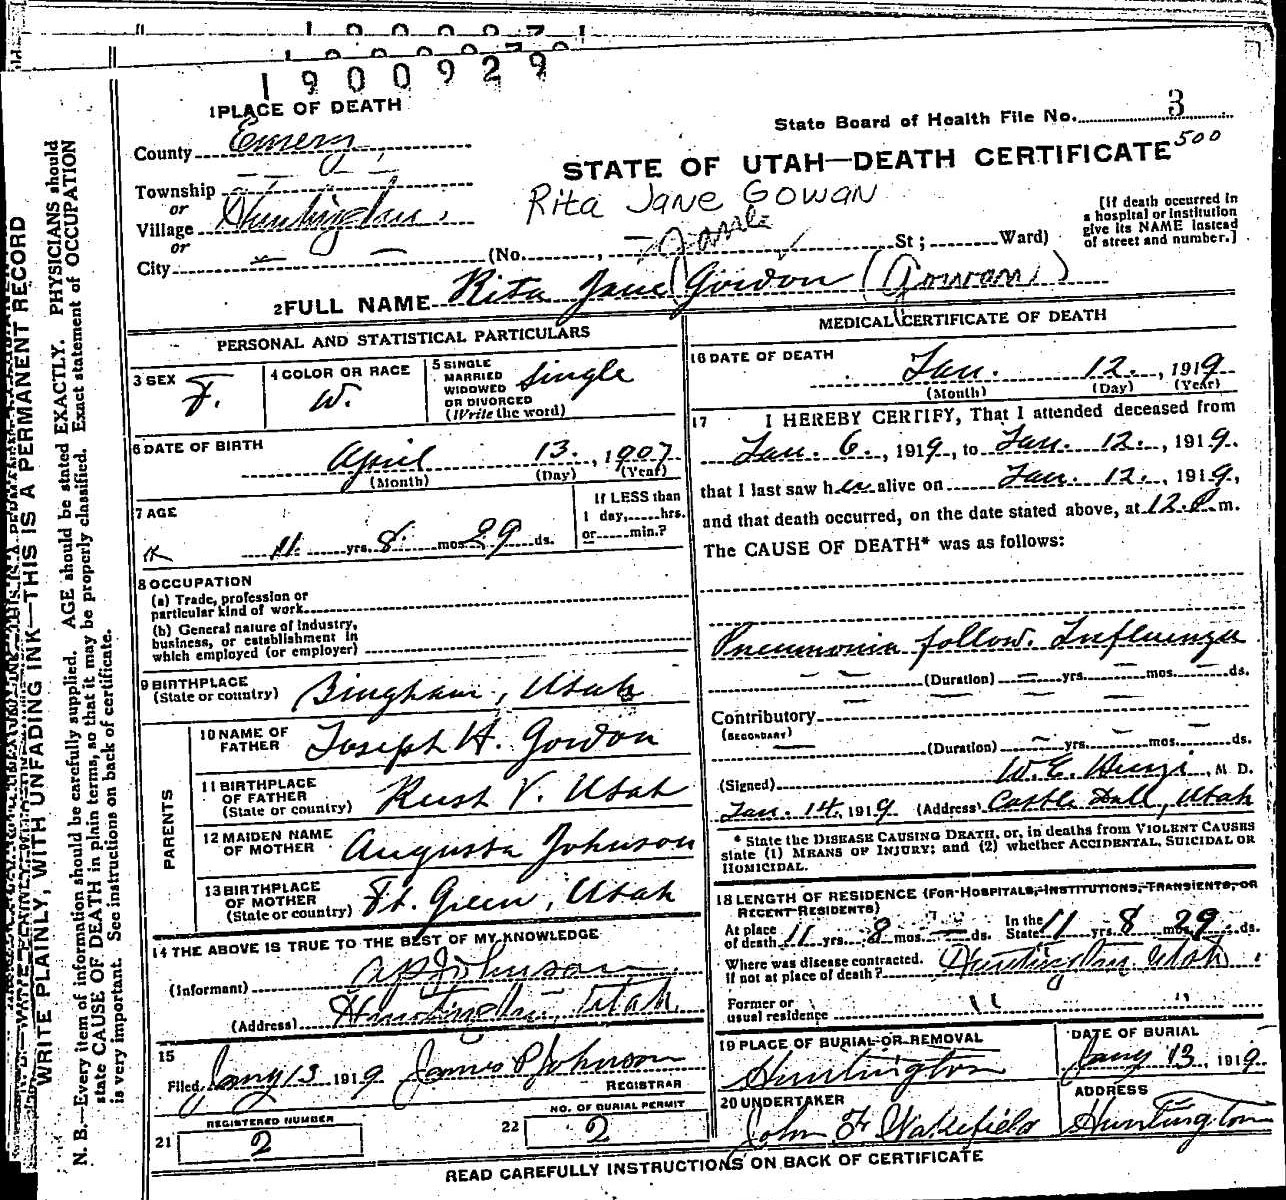 1900929
1 PLACE OF DEATH
State Board of Health File No. 3
500
County Emery
STATE OF UTAH—DEATH CERTIFICATE
Township
or
Village Huntington
Rita Jane Gowan
[If death occurred in
a hospital or institution
give its NAME instead
of street and number.]
or
City (No. , St; Ward)
2 FULL NAME Rita Jane Gowdon (Gowan)
PERSONAL AND STATISTICAL PARTICULARS
3 SEX F.
4 COLOR OR RACE W.
5 SINGLE
MARRIED
WIDOWED
OR DIVORCED
(Write the word) Single
6 DATE OF BIRTH
April 13, 1907
(Month) (Day) (Year)
7 AGE
11 yrs. 8 mos. 29 ds.
If LESS than
1 day, hrs.
or min.?
8 OCCUPATION
(a) Trade, profession or
particular kind of work
(b) General nature of Industry,
business, or establishment in
which employed (or employer)
9 BIRTHPLACE
(State or country) Bingham, Utah
PARENTS
10 NAME OF
FATHER Joseph H. Gowdon
11 BIRTHPLACE
OF FATHER
(State or country) Rush V. Utah
12 MAIDEN NAME
OF MOTHER Augusta Johnson
13 BIRTHPLACE
OF MOTHER
(State or country) Ft. Green, Utah
14 THE ABOVE IS TRUE TO THE BEST OF MY KNOWLEDGE
(Informant) A P Johnson
(Address) Huntington, Utah.
15
Filed Jany 13 1919 James P Johnson
REGISTRAR
21 REGISTERED NUMBER
2
22 NO. OF BURIAL PERMIT
2
MEDICAL CERTIFICATE OF DEATH
16 DATE OF DEATH
Jan. 12, 1919
(Month) (Day) (Year)
17 I HEREBY CERTIFY, That I attended deceased from
Jan. 6, 1919, to Jan. 12, 1919.
that I last saw her alive on Jan. 12, 1919,
and that death occurred, on the date stated above, at 12 P m.
The CAUSE OF DEATH* was as follows:
Pneumonia follow. Influenza
(Duration) yrs. mos. ds.
Contributory
(SECONDARY)
(Duration) yrs. mos. ds.
(Signed) M D.
Jan. 14, 1919 (Address) Castle Dale, Utah
* State the DISEASE CAUSING DEATH, or, in deaths from VIOLENT CAUSES
state (1) MEANS OF INJURY; and (2) whether ACCIDENTAL, SUICIDAL OR
HOMICIDAL.
18 LENGTH OF RESIDENCE (FOR HOSPITALS, INSTITUTIONS, TRANSIENTS, OR
RECENT RESIDENTS)
At place
of death 11 yrs. 8 mos. ds. In the
State 11 yrs. 8 mos. 29 ds.
Where was disease contracted.
if not at place of death? Huntington Utah
Former or
usual residence " "
19 PLACE OF BURIAL OR REMOVAL
Huntington
DATE OF BURIAL
Jany 13, 1919
20 UNDERTAKER
John F Wakefield
ADDRESS
Huntington
READ CAREFULLY INSTRUCTIONS ON BACK OF CERTIFICATE
WRITE PLAINLY, WITH UNFADING INK—THIS IS A PERMANENT RECORD
N. B.—Every item of information should be carefully supplied. AGE should be stated EXACTLY. PHYSICIANS should
state CAUSE OF DEATH in plain terms, so that it may be properly classified. Exact statement of OCCUPATION
is very important. See instructions on back of certificate.